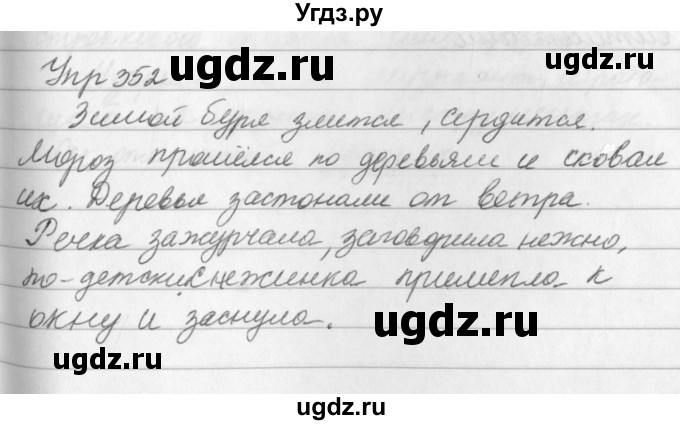 Угдз.ру
Упр 352 ugdz.ru ugdz.ru
Зимой буря злится, сердится.
Мороз прошёлся по деревьям и сковал
их. Деревья застонали от ветра.
Речка зажурчала, заговорила нежно,
по-детски. Снежинка прилипла к
окну и заснула. ugdz.ru
ugdz.ru
ugdz.ru